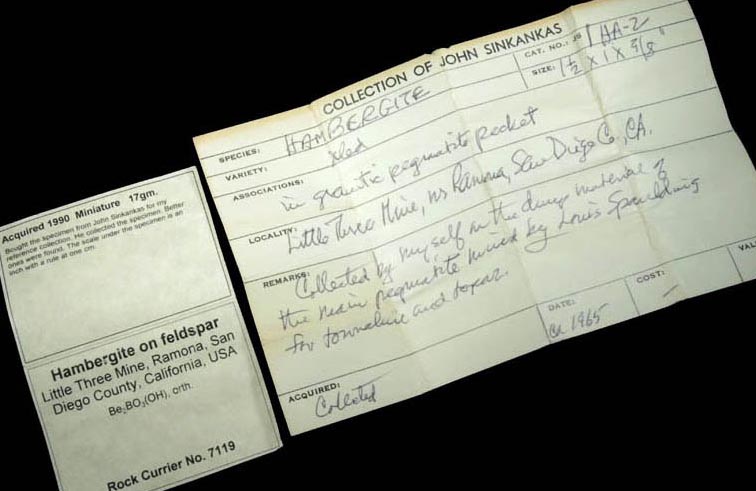 Acquired 1990 Miniature 17gm.
Bought the specimen from John Sinkankas for my
reference collection. He collected the specimen. Better
ones were found. The scale under the specimen is an
inch with a rule at one cm.
Hambergite on feldspar
Little Three Mine, Ramona, San
Diego County, California, USA
Be₂BO₃(OH), orth.
Rock Currier No. 7119
COLLECTION OF JOHN SINKANKAS
CAT. NO.: JS 1 HA-2
SPECIES: HAMBERGITE
SIZE: 1 1/2 x 1 x 3/8"
VARIETY: xled
ASSOCIATIONS: in granitic pegmatite pocket
LOCALITY: Little Three Mine, nr Ramona, San Diego Co., CA.
REMARKS: Collected by myself in the dump material of
the main pegmatite mined by Louis Spaulding
for tourmaline and topaz.
DATE: ca 1965
COST: —
VAL
ACQUIRED: Collected